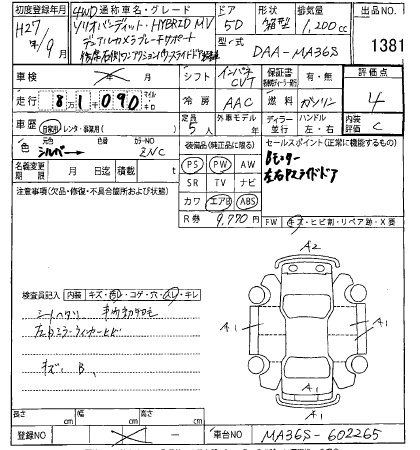 初度登録年月
H27年/9月
4WD 通称車名・グレード
ソリオバンディット HYBRID MV
デュアルカメラブレーキサポート
ドア
5D
形状
箱型
排気量
1,200cc
型・式
DAA-MA36S
出品NO.
1381
車検
年 月
シフト
インパネ CVT
保証書
有・無
評価点
4
走行
81,090
マイル
キロ
冷房
AAC
燃料
ガソリン
車歴
自家用・レンタ・事業用( )
定員
5人
外車モデル
年
ディーラー
並行
ハンドル
左・右
内装評価
C
色
元色
シルバー
色替
カラーNO
ZNC
装備品(純正品に限る)
PS PW AW
SR TV ナビ
カワ エアB ABS
R券 9,770円
セールスポイント(正常に機能するもの)
Bモニター
左右Pスライドドア
名義変更期限
月 日迄
積載
t
注意事項(欠品・修復・不具合箇所および状態)
FW
キズ・ヒビ割・リペア跡・X要
検査員記入
内装
キズ・コゲ・穴・キレ
シートヘタリ
左ドアミラーウィンカーヒビ
キズ、B、
A2
A1
A1
A1
A1
長さ
cm
幅
cm
高さ
cm
登録NO
車台NO
MA36S-602265